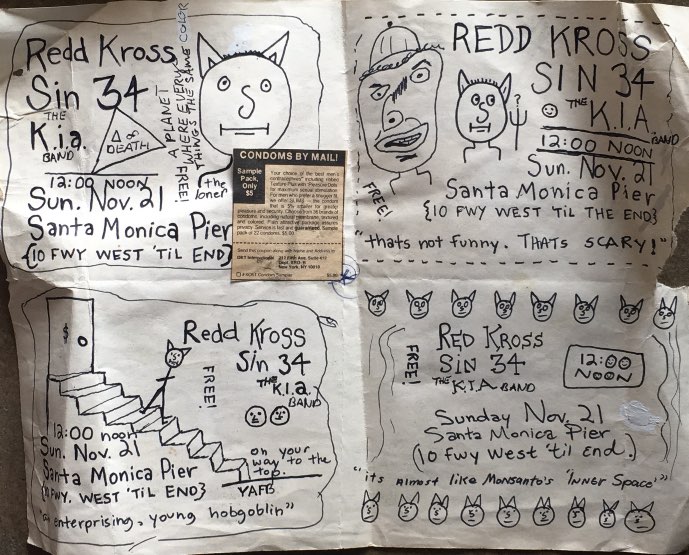 Redd Kross
Sin 34
THE
K.i.a.
BAND
Δ ∞
DEATH
FREE! A PLANET
WHERE EVERY
THINGS THE SAME COLOR
12:00 NOON
Sun. Nov. 21
Santa Monica Pier
{10 FWY WEST 'TIL END}
(the
loner
CONDOMS BY MAIL!
Sample
Pack,
Only
$5
Your choice of the best men's
REDD KROSS
SIN 34
THE
K.I.A.
BAND
12:00 NOON
Sun. Nov. 21
Santa Monica Pier
{10 FWY WEST 'TIL THE END}
FREE!
?
"thats not funny, THATS SCARY!"
$
Redd Kross
Sin 34
THE
K.i.a.
BAND
FREE!
12:00 noon
Sun. Nov. 21
Santa Monica Pier
{10 FWY. WEST 'TIL END}
on your
way to the
top.
YAFB
enterprising, young hobgoblin"
FREE!
RED KROSS
SIN 34
THE K.I.A BAND
12:00
NOON
Sunday Nov. 21
Santa Monica Pier
(10 fwy West 'til end.)
"its Almost like Monsanto's 'INNER Space'"